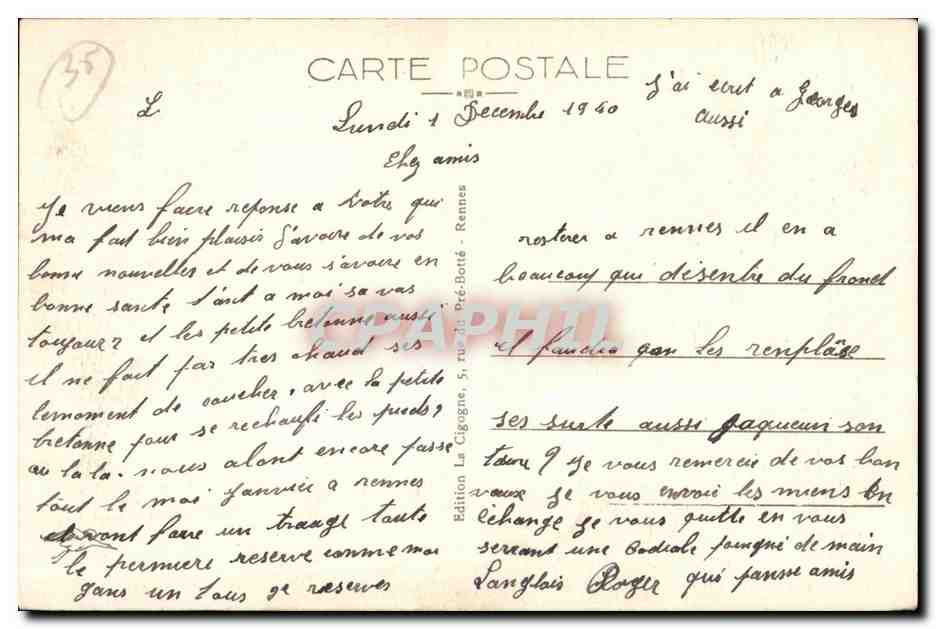 35
CARTE POSTALE
L
Lundi 1 Decembre 1940
J'ai ecrit a Georges
aussi
Chez amis
Je viens faire reponse a Votre qui
ma fait bien plaisir J'avoire de vos
bonne nouvelles et de vous s'avoire en
bonne sante t'ant a moi sa vas
toujour et les petite bretonne aussi
il ne fait pas tres chaud ses
lemoment de coucher, avec la petite
bretonne pour se rechaufé les pieds,
au la la. nous alont encore passe
tout le moi Janvier a rennes
et vont faire un tirage toute
le permiere reserve comme moi
dans un tous de reserves
Edition La Cigogne, 5, rue du Pré-Botté - Rennes
CPAPHIL
resterer a rennes il en a
beaucoup qui désentre du front
et faudra quon les renplâse
ses surte aussi Jaqueun son
toure ? Je vous remercie de vos bon
vaux Je vous envoie les miens En
échange Je vous quitte en vous
serrant une Codiale poingné de main
Langlois Roger qui pansse amis